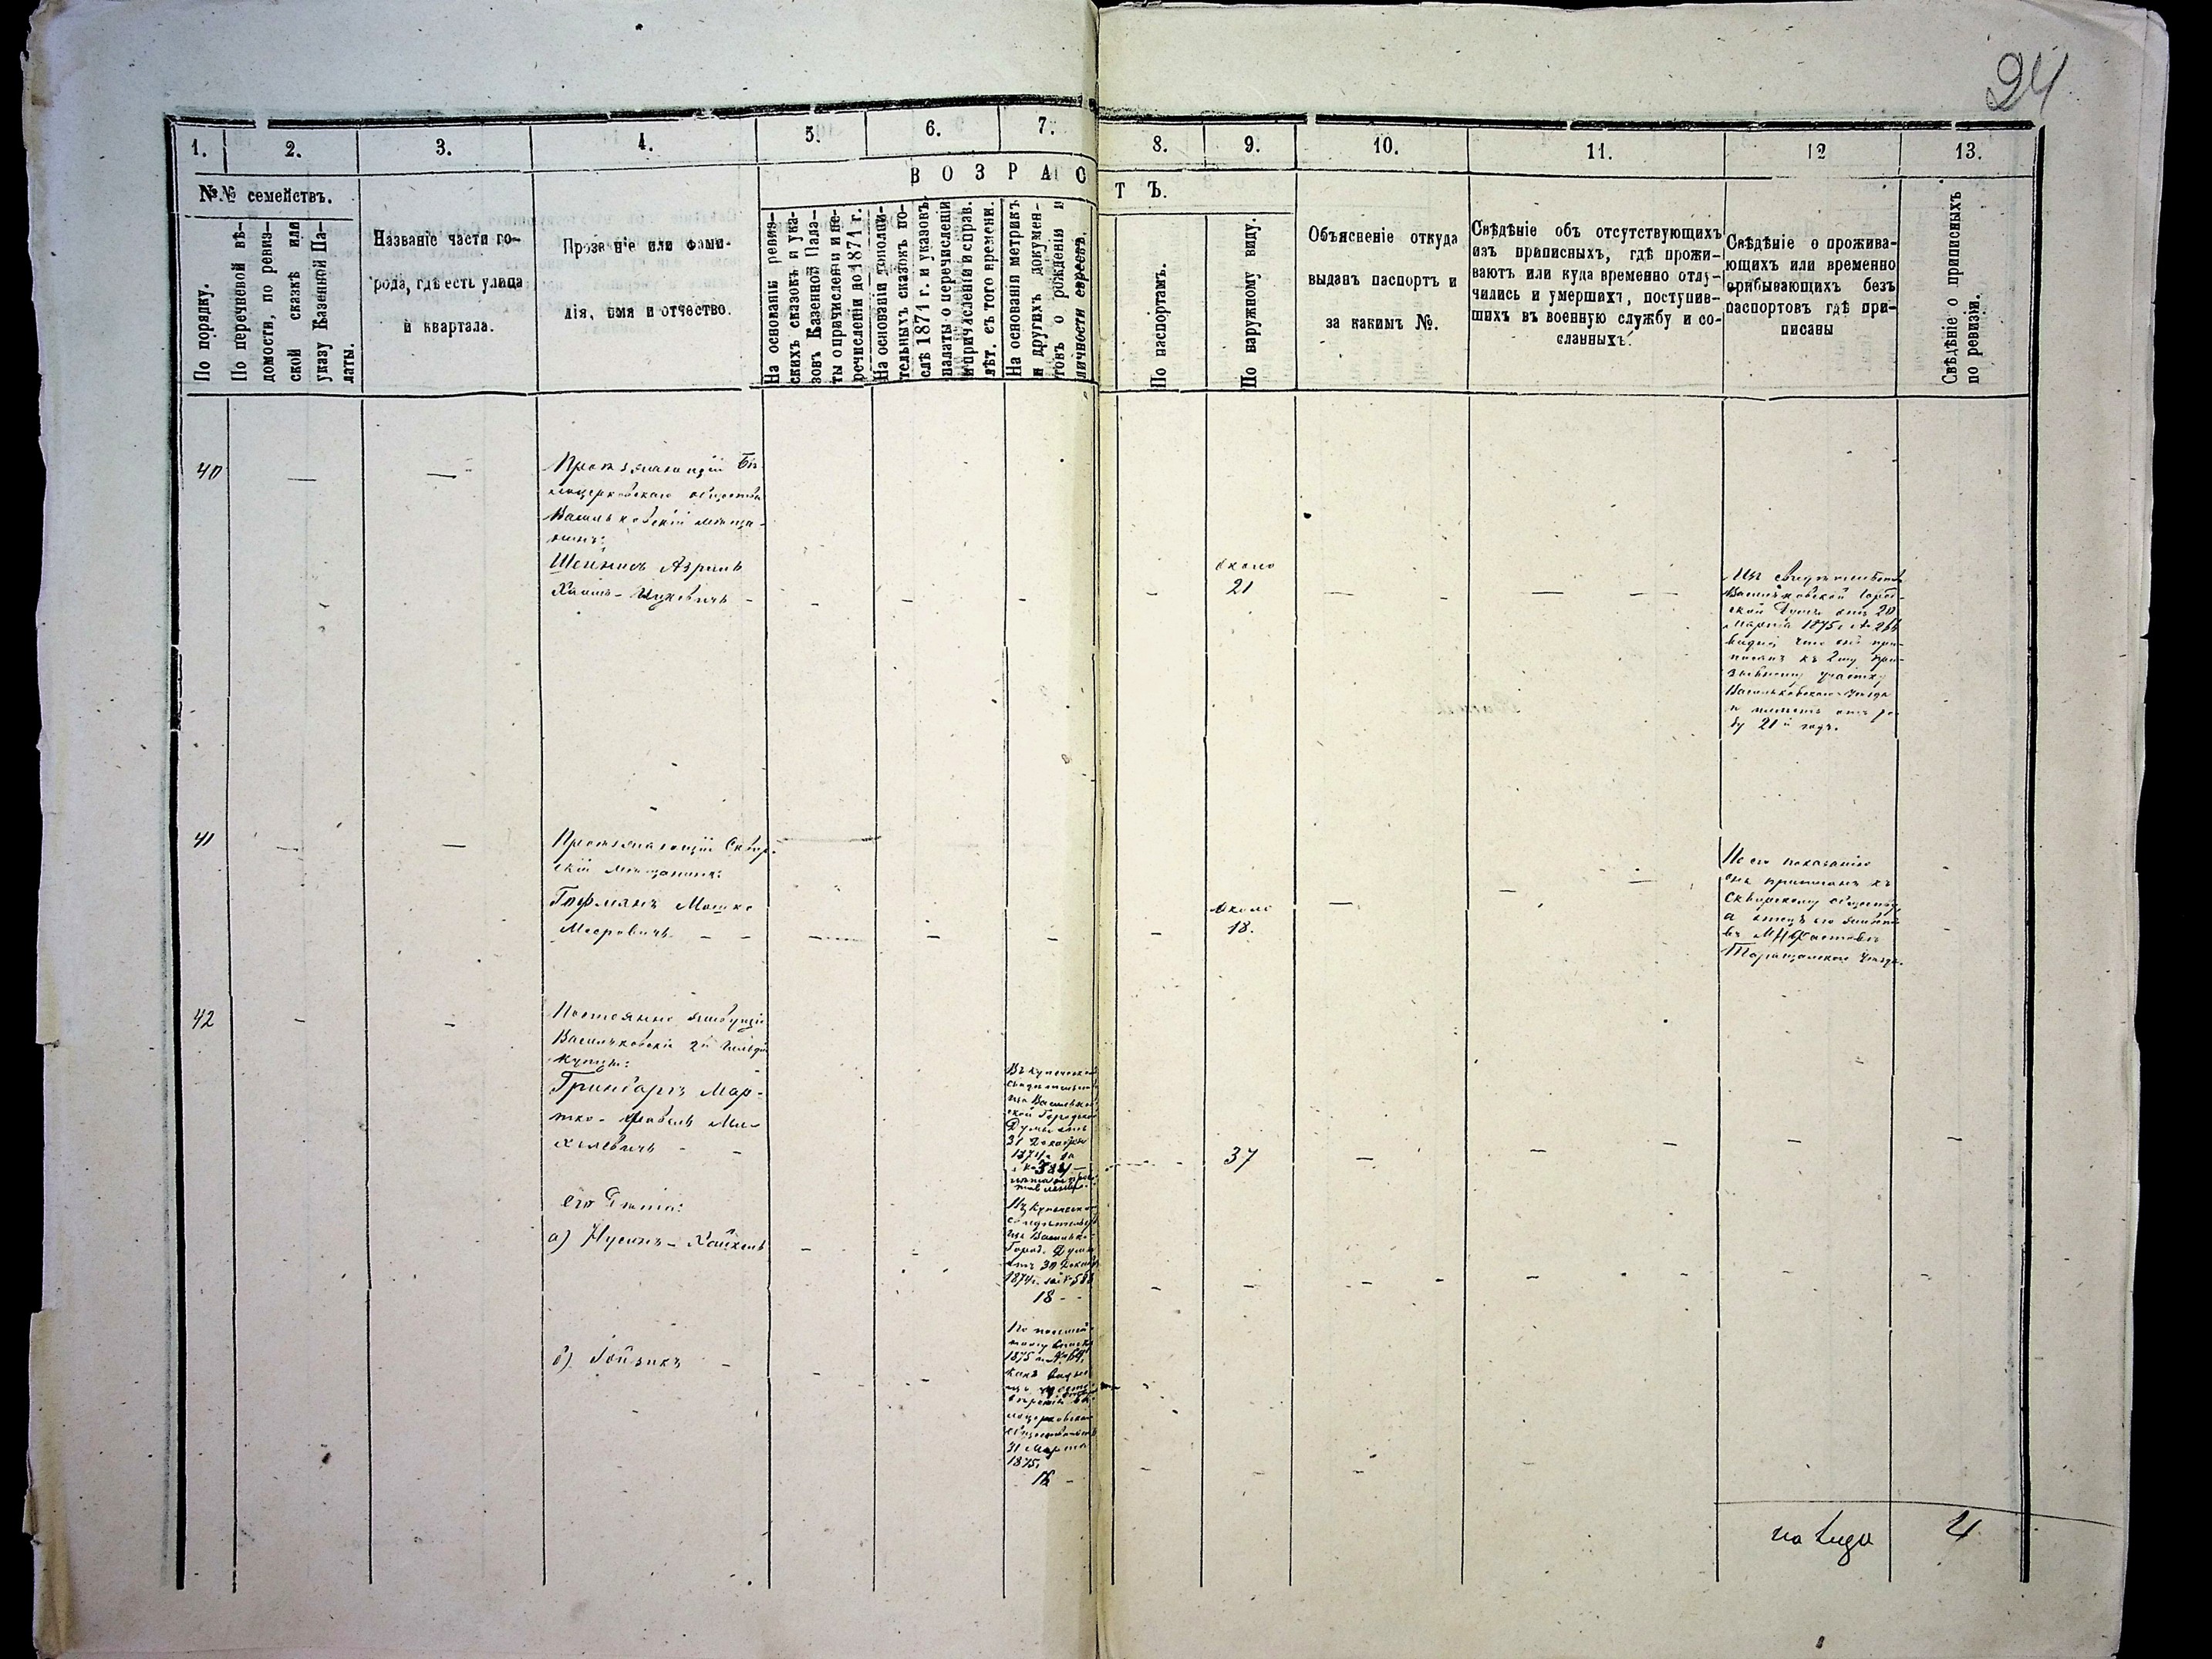 24
1. 2. 3. 4. 5. 6. 7. 8. 9. 10. 11. 12 13.
№№ семействъ.
В О З Р А С Т Ъ.
По порядку.
По перечневой вѣ-
домости, по ревиз-
ской сказкѣ или
указу Казенной Па-
латы.
Названіе части го-
рода, гдѣ есть улица
и квартала.
Прозваніе или фами-
лія, имя и отчество.
На основаніи ревиз-
скихъ сказокъ и ука-
зовъ Казенной Пала-
ты о причисленіи и пе-
речисленіи до 1874 г.
На основаніи дополни-
тельныхъ сказокъ по-
слѣ 1874 г. и указовъ
палаты о перечисленіи
и причисленіи и справ.
лѣт. съ того времени.
На основаніи метрикъ
и другихъ докумен-
товъ о рожденіи и
личности евреевъ.
По паспортамъ.
По наружному виду.
Объясненіе откуда
выданъ паспортъ и
за какимъ №.
Свѣдѣніе объ отсутствующихъ
изъ приписныхъ, гдѣ прожи-
ваютъ или куда временно отлу-
чились и умершихъ, поступив-
шихъ въ военную службу и со-
сланныхъ.
Свѣдѣніе о прожива-
ющихъ или временно
прибывающихъ безъ
паспортовъ гдѣ при-
писаны
Свѣдѣніе о приписныхъ
по ревизіи.
40
— —
Бѣ-
лоцерковскаго общества
Васильковскій мѣща-
нинъ:
Шейнисъ Азриль
Хаимъ-Ицковичъ -
около
21
Изъ свидѣтельства
Васильковской Город-
ской Думы отъ 20
Марта 1875 г. №
видно, что онъ при-
писанъ къ 2му при-
зывному участку
Васильковскаго Уѣзда
и имѣетъ отъ ро-
ду 21й годъ.
41
— —
Сквир-
скій мѣщанинъ:
Гофманъ Мошко
Мееровичъ - -
около
18.
По его показанію
онъ приписанъ къ
Сквирскому обществу,
а отецъ его
въ М.
Таращанскаго Уѣзда.
42
- -
Постоянно живущій
Васильковскій 2й Гильдіи
Купецъ:
Гринбаргъ Мор-
тко- Ми-
хелевичъ - -
Въ купеческомъ
свидѣтельствѣ
изъ Васильков-
ской Городской
Думы отъ
31 Декабря
1874 г. за
№ 584
37
его Дѣти:
а) Нусинъ-Хайкель
Изъ купеческаго
свидѣтельства
изъ Васильк.
Город. Думы
отъ 30 Декабр
1874 г. за №
18 - -
б) Гойзикъ -
По
1875
какъ видно
лоцерковскаго
31 Марта
1875.
16 -
на лицо 4